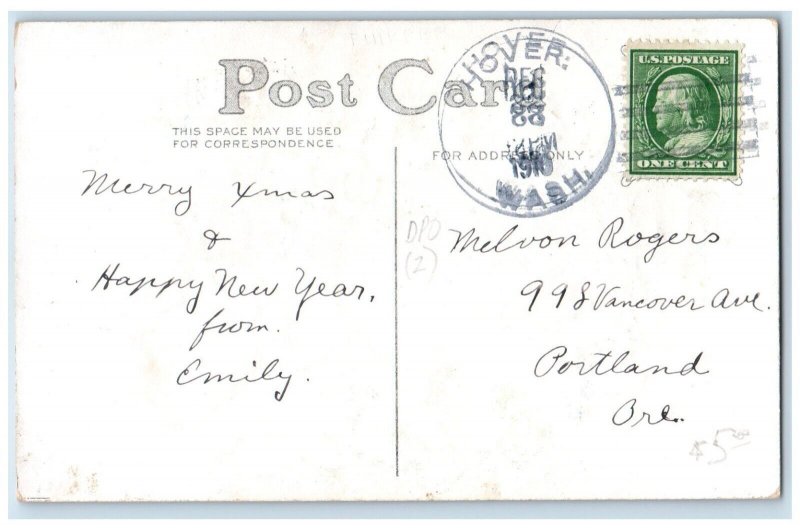 Post Card
THIS SPACE MAY BE USED
FOR CORRESPONDENCE
FOR ADDRESS ONLY
HOVER,
DEC
1910
WASH.
U.S. POSTAGE
ONE CENT
Merry Xmas
&
Happy New Year,
from.
Emily.
DPO
(2)
Melvon Rogers
998 Vancover Ave.
Portland
Ore.
$5.00